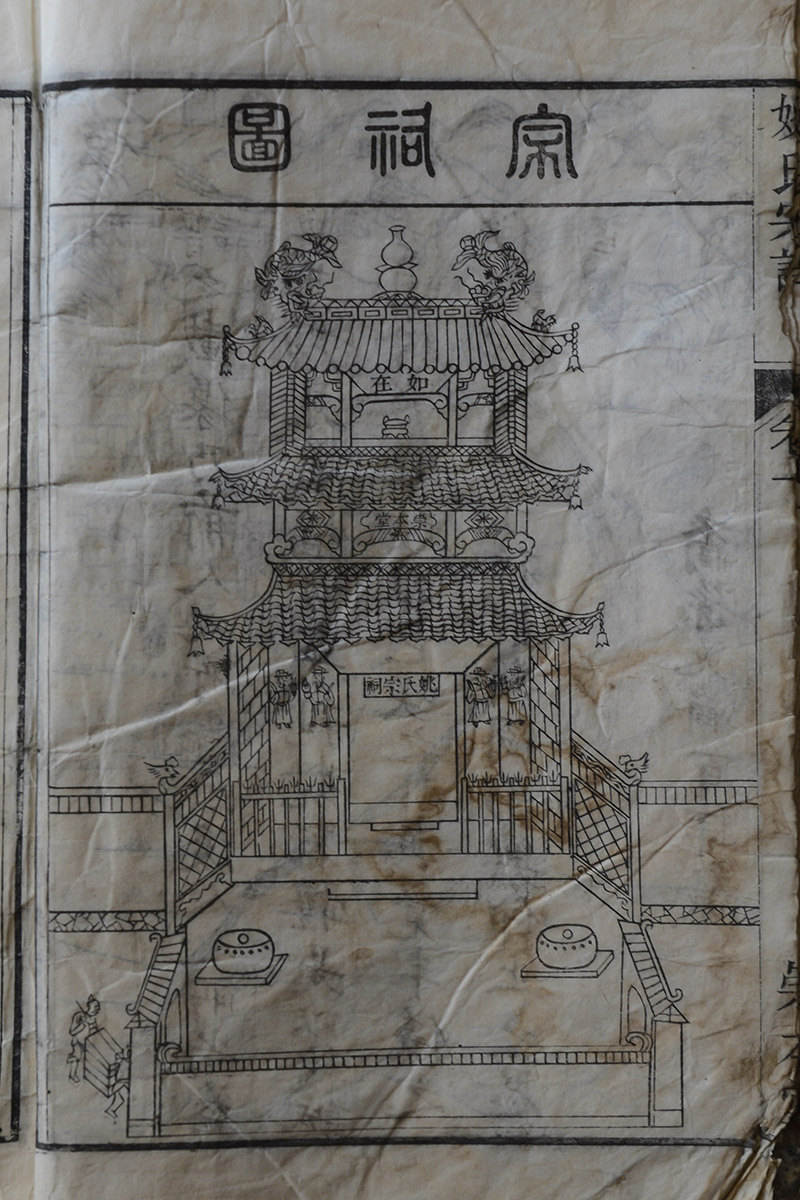 宗祠圖
如在
崇本堂
姚氏宗祠
姚氏宗譜
卷一